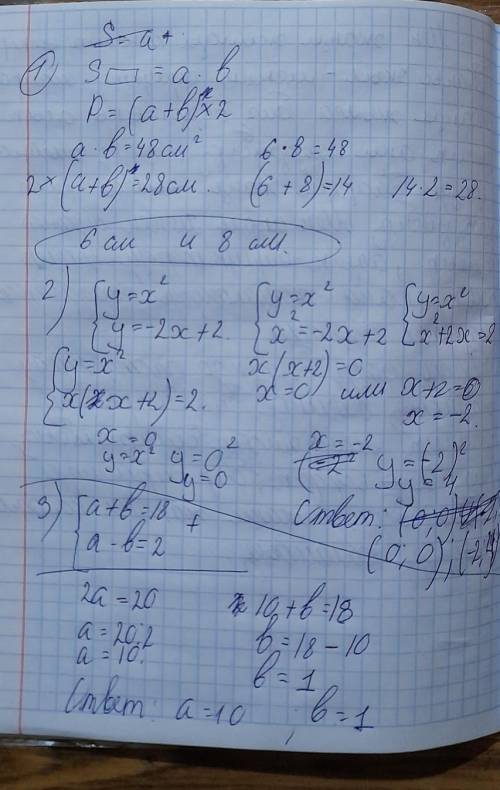 S = a +
① S▭ = a · b
P = (a+b)×2
a · b = 48 см² 6·8=48
2×(a+b)=28 см. (6+8)=14 14·2=28.
6 см и 8 см.
2) {y=x² {y=x² {y=x²
{y=-2x+2. {x²=-2x+2 {x²+2x=2
{y=x² x(x+2)=0
{x(x+2)=2. x=0 или x+2=0
x=-2.
x=0 x=-2
y=x² y=0² y=(-2)²
y=0 y=4
Ответ: (0; 0); (-2; 4)
3) {a+b=18 +
{a-b=2
2a=20 10+b=18
a=20:2 b=18-10
a=10. b=1
Ответ: a=10 ; b=1